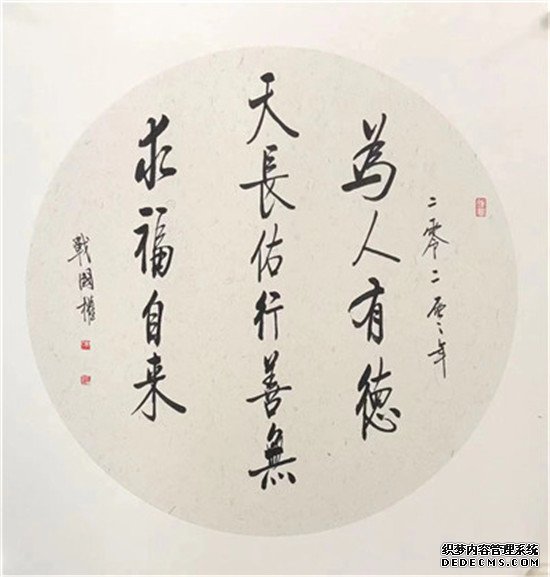 二零二年
為人有德
天長佑行善無
求福自来
戰國權
织梦内容管理系统
DEDECMS.COM